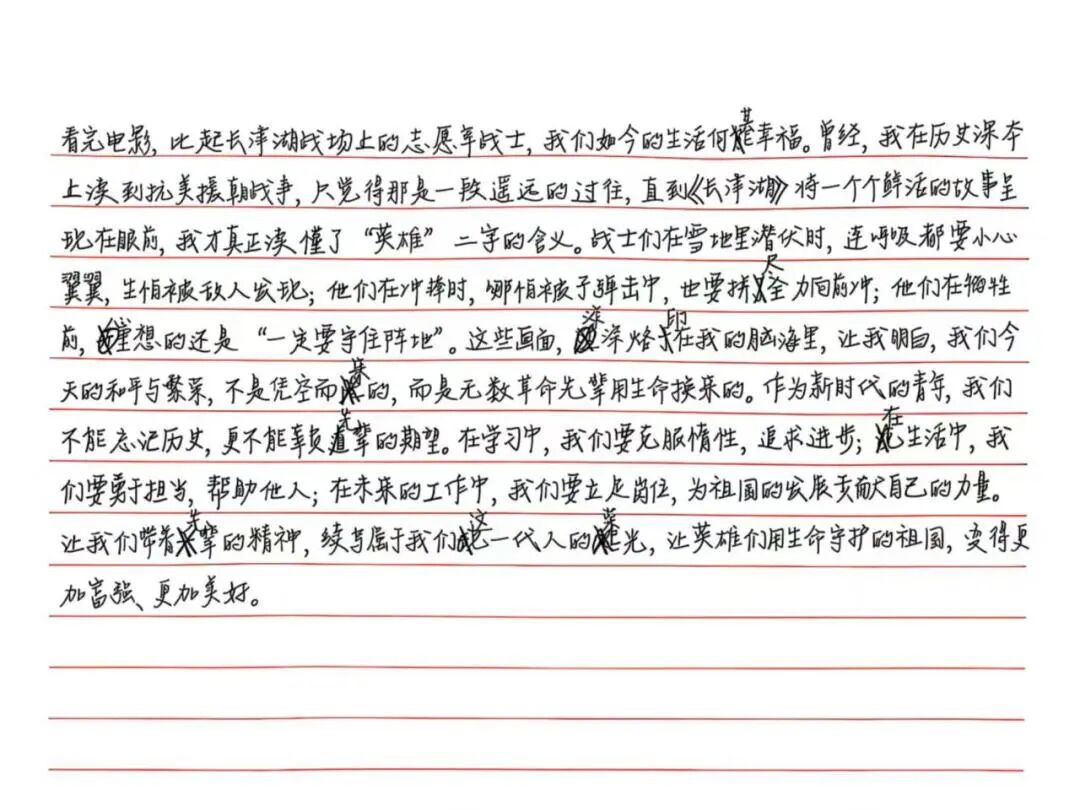 看完电影，比起长津湖战场上的志愿军战士，我们如今的生活何其幸福。曾经，我在历史课本
上读到抗美援朝战争，只觉得那是一段遥远的过往，直到《长津湖》将一个个鲜活的故事呈
现在眼前，我才真正读懂了“英雄”二字的含义。战士们在雪地里潜伏时，连呼吸都要小心
翼翼，生怕被敌人发现；他们在冲锋时，哪怕被子弹击中，也要拼尽全力向前冲；他们在牺牲
前，想的还是“一定要守住阵地”。这些画面，深深烙印在我的脑海里，让我明白，我们今
天的和平与繁荣，不是凭空而来的，而是无数革命先辈用生命换来的。作为新时代的青年，我们
不能忘记历史，更不能辜负先辈的期望。在学习中，我们要克服惰性，追求进步；在生活中，我
们要勇于担当，帮助他人；在未来的工作中，我们要立足岗位，为祖国的发展贡献自己的力量。
让我们带着先辈的精神，续写属于我们这一代人的荣光，让英雄们用生命守护的祖国，变得更
加富强、更加美好。